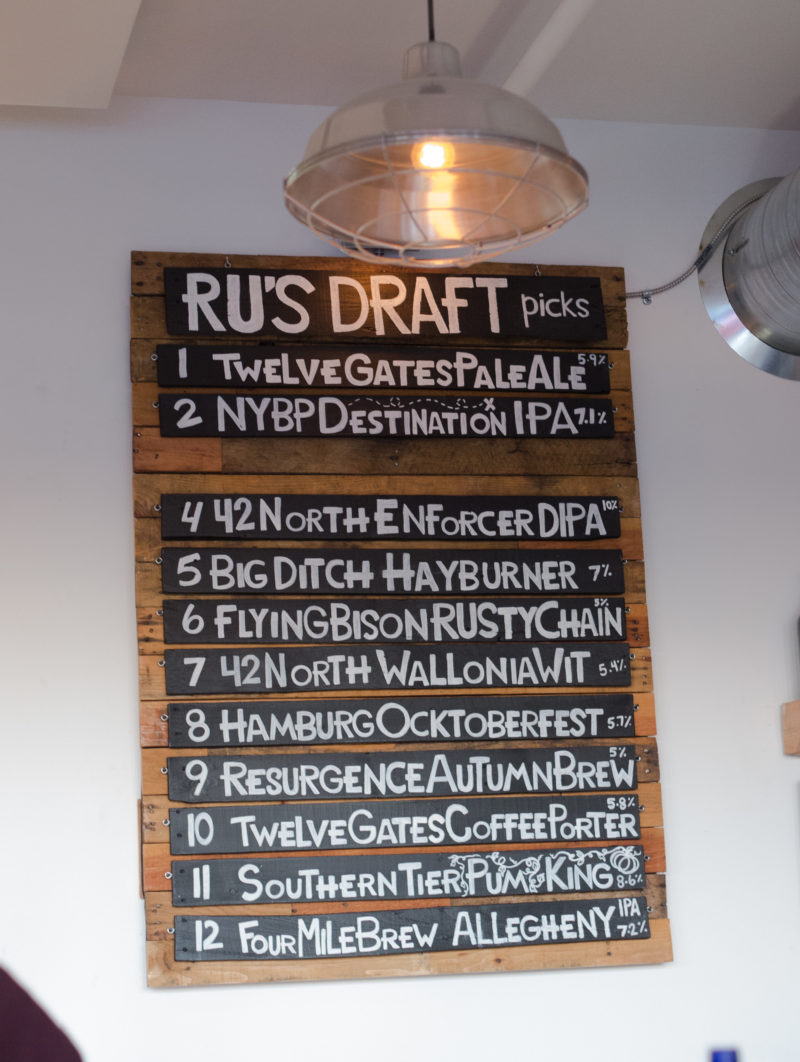 RU'S DRAFT picks
1 TWELVE GATES PALE ALE 5.9%
2 NYBP DESTINATION IPA 7.1%
4 42 NORTH ENFORCER DIPA 10%
5 BIG DITCH HAYBURNER 7%
6 FLYING BISON RUSTY CHAIN 5%
7 42 NORTH WALLONIA WIT 5.4%
8 HAMBURG OCKTOBERFEST 5.7%
9 RESURGENCE AUTUMN BREW 5%
10 TWELVE GATES COFFEE PORTER 5.8%
11 SOUTHERN TIER PUMPKING 8.6%
12 FOUR MILE BREW ALLEGHENY IPA 7.2%